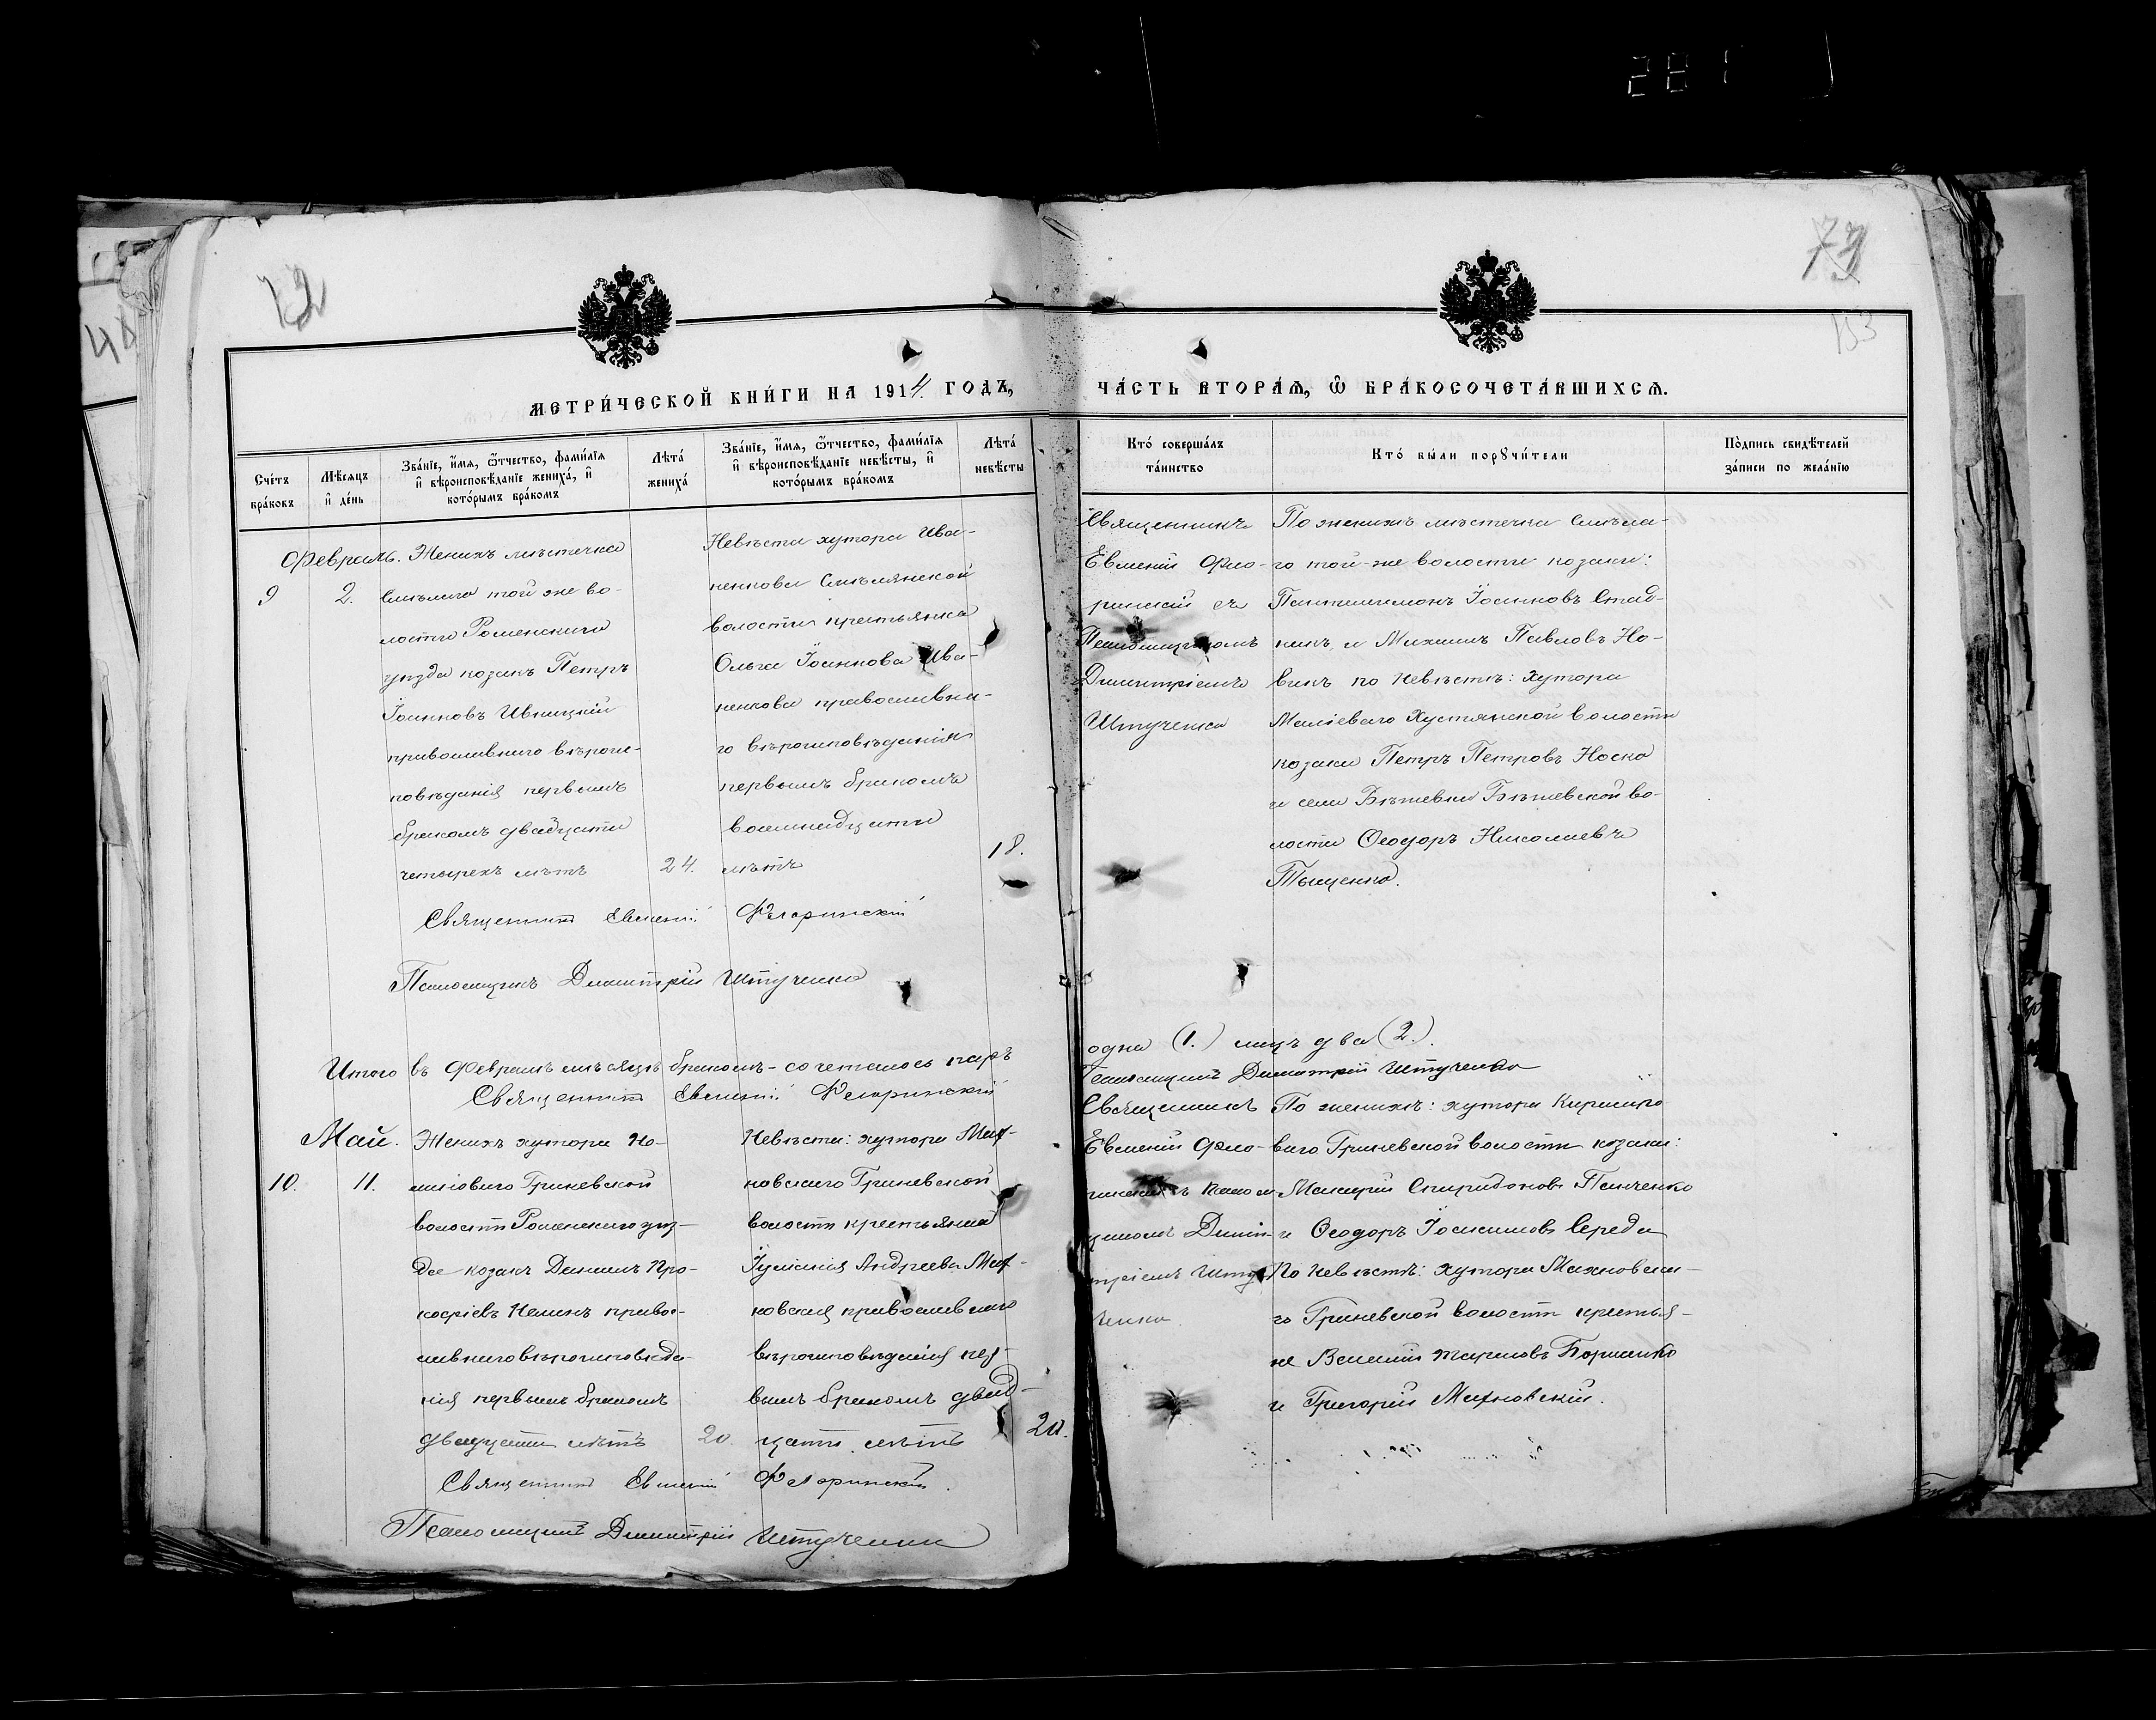 281
72
73
153
МЕТРИ́ЧЕСКОЙ КНИ́ГИ НА 1914. ГОДЪ,
ЧА́СТЬ ВТОРА́Ѧ, Ѿ БРА́КОСОЧЕТА́ВШИХСѦ.
Сче́тъ бра́ковъ
Мѣ́сяцъ и҆ де́нь
Зва́нїе, и҆́мя, ѻ҆́тчество, фами́лїя
и҆ вѣроисповѣ́данїе жениха̀, и҆
кото́рымъ бра́комъ
Лѣта̀ жениха̀
Зва́нїе, и҆́мя, ѻ҆́тчество, фами́лїя
и҆ вѣроисповѣ́данїе невѣ́сты, и҆
кото́рымъ бра́комъ
Лѣта̀ невѣ́сты
Кто̀ соверша́лъ
та́инство
Кто̀ бы́ли порꙋчи́тели
По́дпись свидѣ́телей
за́писи по жела́нїю
Февраль.
9
2.
Женихъ мѣстечка
Смѣлаго той же во-
лости Роменскаго
уѣзда козакъ Петръ
Іоанновъ Ивницкій
православнаго вѣроис-
повѣданія первымъ
бракомъ двадцати
четырехъ лѣтъ
24.
Невѣста хутора Ива-
ненкова Смѣлянской
волости крестьянка
Ольга Іоаннова Ива-
ненкова православна-
го вѣроисповѣданія
первымъ бракомъ
восемнадцати
лѣтъ
18.
Священникъ
Евменій Фло-
ринскій съ
Псаломщикомъ
Димитріемъ
Штученко
По женихѣ мѣстечка Смѣла-
го той-же волости козаки:
Пантелеимонъ Іоанновъ Стад-
никъ и Михаилъ Павловъ Но-
викъ по невѣстѣ: хутора
Маліеваго Хустянской волости
козаки Петръ Петровъ Носко
и села Бѣшевки Бѣшевской во-
лости Ѳеодоръ Николаевъ
Тыщенко.
Священникъ Евменій Флоринскій
Псаломщикъ Димитрій Штученко
Итого въ Февралѣ мѣсяцѣ бракомъ-сочеталось паръ
одна (1.) лицъ два (2.).
Священникъ Евменій Флоринскій
Псаломщикъ Димитрій Штученко
Май.
10.
11.
Женихъ хутора
Гриневской
волости Роменскаго уѣз-
да козакъ Даніилъ Про-
кофіевъ правос-
лавнаго вѣроисповѣда-
нія первымъ бракомъ
двадцати лѣтъ
20.
Невѣста: хутора Мах-
новскаго Гриневской
волости крестьянка
Іуліанія Андреева Мах-
новская православнаго
вѣроисповѣданія пер-
вымъ бракомъ двад-
цати лѣтъ
20.
Священникъ
Евменій Фло-
ринскій съ Псалом-
щикомъ Димит-
тріемъ Шту-
ченко
По женихѣ: хутора
Гриневской волости козаки:
Спиридоновъ Панченко
и Ѳеодоръ Іоакимовъ Середа
По невѣстѣ: хутора Махновска-
го Гриневской волости крестья-
не
и Григорій Махновскій.
Священникъ Евменій Флоринскій.
Псаломщикъ Димитрій Штученко